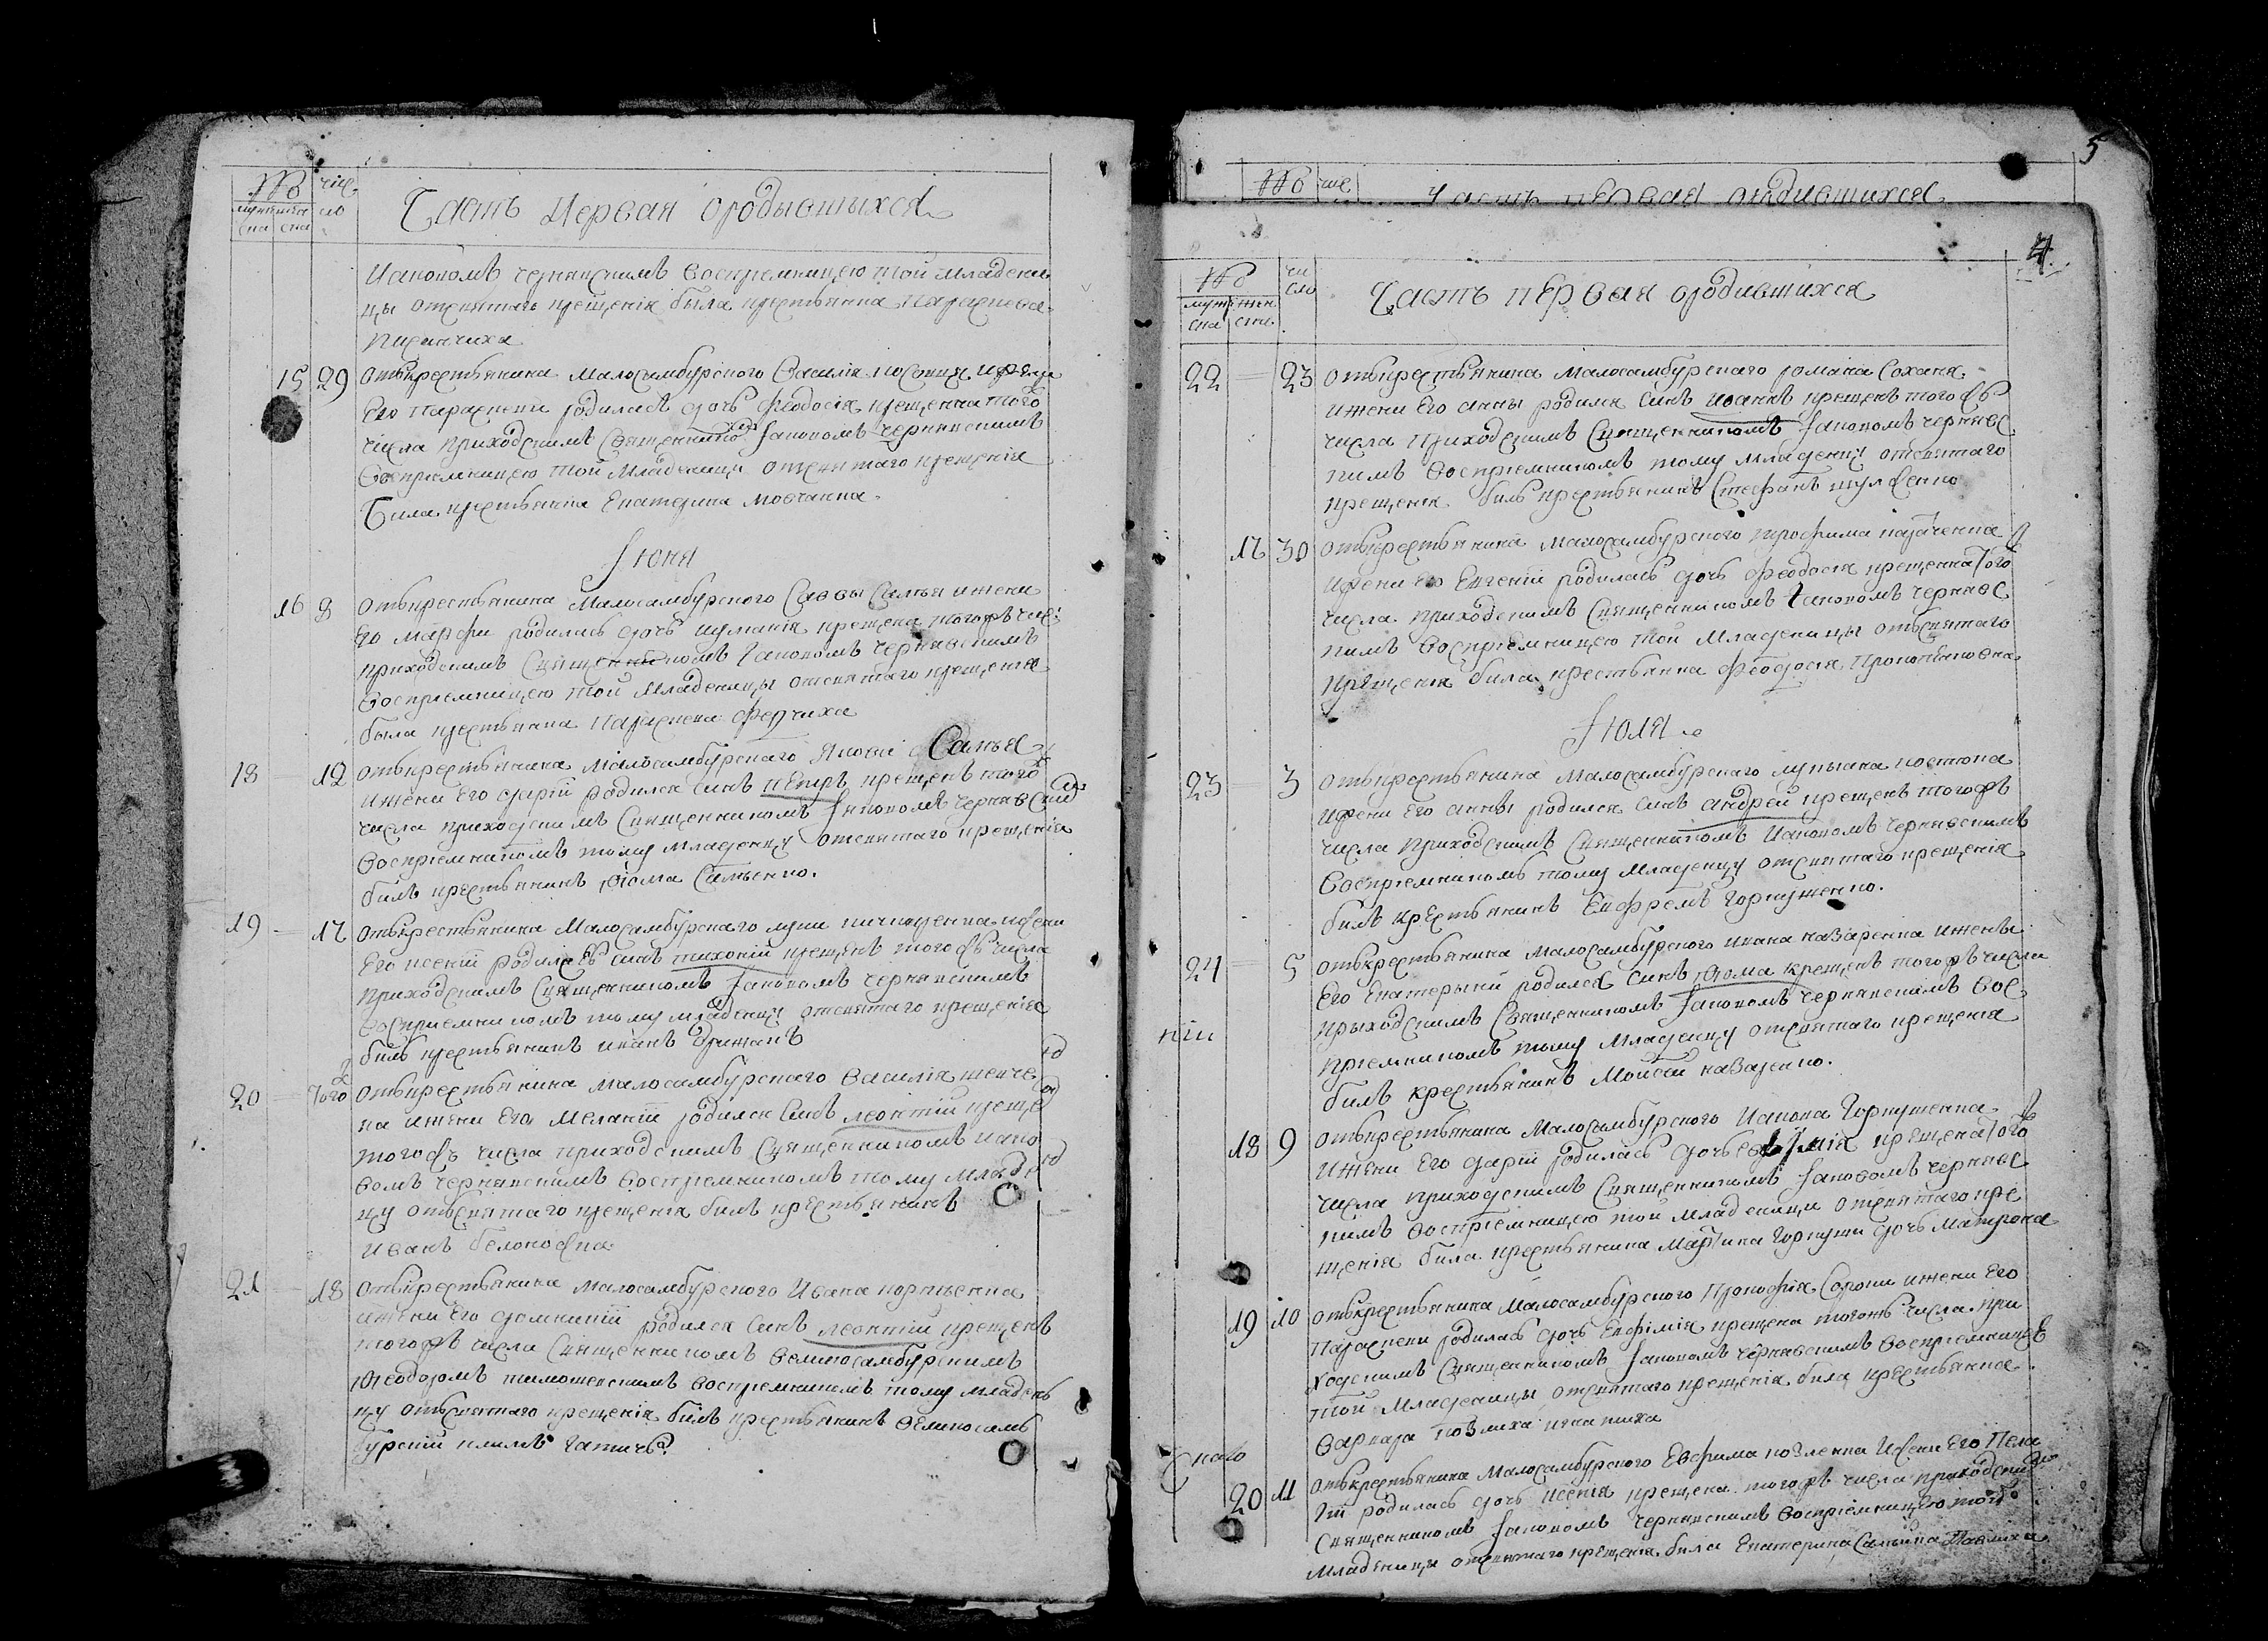 № чис
мужеска женска ло
Часть Первая ородывшыхся
Иаковомъ чернявскимъ воспріемницею той младени
цы отсвятаго крещенія была крестянка Параскева
15 29 Открестьянина Малосамбурского Василія и жены
Его Параскеви родиласъ дочъ Феодосія крещенна того
числа приходскимъ священнико Іаковомъ чернявскимъ
Воспріемницею той младеници отсвятаго крещенія
Била крестьянка Екатерина Мовчанка.
Іюня
16 8 Открестьянина Малосамбурского Саввы Сампья ижени
Его Марфи родилась дочъ крещена тогожъ чис:
приходскимъ священникомъ Іаковомъ чернявскимъ
Воспріемницею той младеницы отсвятаго крещенія
была крестьянка Параскева
18 12 Открестьянина Малосамбурскаго Якова
ижени Его Дарій родился синъ Петръ крещенъ того
числа приходскимъ священникомъ Іаковомъ чернявским
Воспріемникомъ тому младенцу отсвятаго крещенія
билъ крестьянинъ Ѳома
19 17 Открестьянина Малосамбурскаго Луки ижени
Его Ксеніи родился синъ тихоній крещенъ тогожъ числа
Приходскимъ священникомъ Іаковомъ чернявскимъ
Воспріемникомъ тому младенцу отсвятаго крещенія
билъ крестьянинъ Иванъ
20 того Открестьянина Малосамбурскаго Василія шевче
ка ижени Его Меланіи родился синъ леонтій креще
тогожъ числа приходскимъ священникомъ Иако
вомъ чернявскимъ воспріемникомъ тому млад
цу отсвятаго крещенія билъ крестьянинъ
Иванъ белоножка
21 18 Открестьянина Малосамбурского Ивана
ижени Его Домникіи родился синъ леонтій крещенъ
тогожъ числа священникомъ великосамбурскимъ
Ѳеодоромъ тимошевскимъ воспріемникомъ тому младен
цу отсвятаго крещенія билъ крестьянинъ великосам
бурскій климъ
5
№ чис
Часть первая ородившихся
4
№ чи
мужеска женска сло
Часть первая ородившихся
22 23 Открестьянина Малосамбурскаго романа Соханя
ижени Его анны родился синъ иоаннъ крещенъ тогожъ
числа Приходскимъ священникомъ Іаковомъ чернявс
кимъ воспріемникомъ тому младенцу отсвятаго
крещенія билъ крестьянинъ Стефанъ
17 30 Открестьянина Малосамбурского Трофима
ижени Его Евгеніи родилась дочъ Феодосія крещенна того
числа приходскимъ священникомъ Іаковомъ чернявс
кимъ воспріемницею той младеницы отсвятаго
крещенія била крестьянка Феодосія Прокопьковна
Іюля
23 3 Открестьянина Малосамбурскаго лукьяна костюка
ижени Его анны родился синъ андрей крещенъ тогожъ
числа приходскимъ священникомъ Иаковомъ чернявскимъ
Воспріемникомъ тому младенцу отсвятаго крещенія
билъ крестьянинъ Ефремъ Горкушенко.
24 5 Открестьянина Малосамбурского Ивана назаренка ижены
Его Екатерыни родился синъ Ѳома крещенъ тогожъ числа
прыходскимъ священникомъ Іаковомъ чернявскимъ вос
пріемникомъ тому младенцу отсвятаго крещенія
билъ крестьянинъ Мойсей назаренко.
18 9 Открестьянина Малосамбурского Иакова Горкушенка
ижени Его Дарій родилась дочъ крещена того
числа приходскимъ священникомъ Іаковомъ чернявс
кимъ воспріемницею той младеници отсвятаго кре
щенія била крестьянина Мартина Горкуши дочъ Матрона
19 10 Открестьянина Малосамбурского Прокофія Сороки ижени Его
Параскеви родилась дочъ Евфимія крещена тогожъ числа при
ходскимъ священникомъ Іаковомъ чернявскимъ воспріемницею
той младеницы отсвятаго крещенія била крестьянка
Варвара
20 11 Открестьянина Малосамбурского Евфима ижени Его Пела
гіи родилась дочъ Ксенія крещена тогожъ числа приходским
священникомъ Іаковомъ чернявскимъ воспріемницею той
младеници отсвятаго крещенія била Екатерина